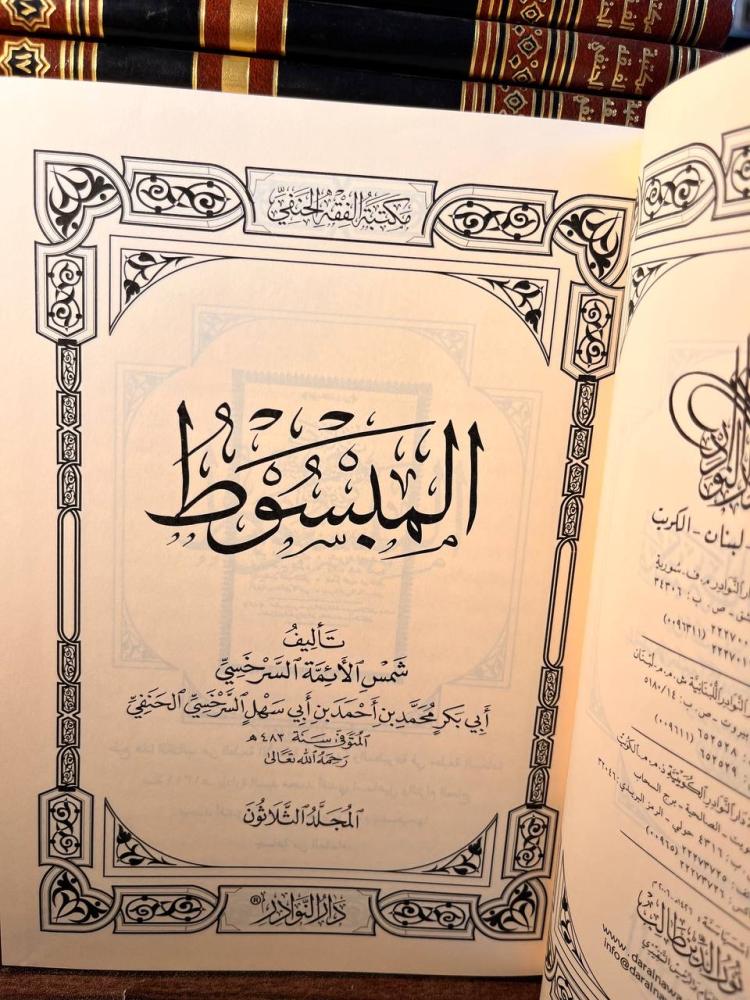 مكتبة الفقه الحنفي
مكتبة الفقه الحنفي
المَبْسُوط
تأليفُ
شمس الأئمة السرخسي
أبي بكر محمد بن أحمد بن أبي سهل السرخسي الحنفي
المتوفى سنة ٤٨٣ هـ
رحمه الله تعالى
المجلد الثلاثون
دار النوادر ®
لبنان - الكويت
دار النوادر م.ف - سورية
ص. ب: ٣٤٣٠٦
(٠٠٩٦٣١١)
النوادر اللبنانية ش.م.م - لبنان
بيروت - ص. ب: ٥١٨٠/١٤
(٠٠٩٦١١) ٦٥٢٥٢٨
٦٥٢٥٢٩
دار النوادر الكويتية ذ.م.م - الكويت
الصالحية - برج السحاب
ب: ٤٣١٦ حولي - الرمز البريدي: ٣٢٠٤٦
٢٢٢٧٣٧٢٥ (٠٠٩٦٥)
٢٢٢٧٣٧٢٦
نور الدين طالب
www.daralnaw
info@daraln